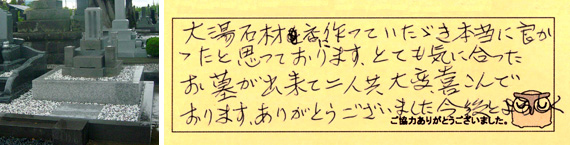 大湯石材店に作っていただき本当に良か
ったと思っております、とても気に合った
お墓が出来て二人共大変喜こんで
おります、ありがとうございました今後とも
ご協力ありがとうございました。